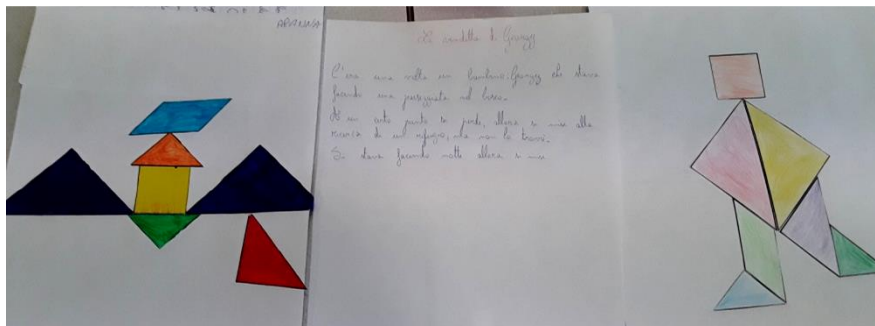 C'era una volta un bambino: Grangg che stava
facendo una passeggiata nel bosco.
Ad un certo punto si perde, allora si mise alla
ricerca di un rifugio, ma non lo trovò.
Si stava facendo notte allora si mise